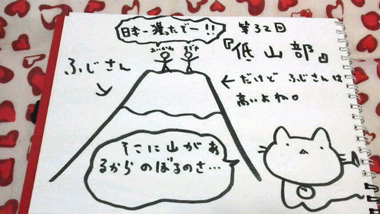 第32回
『低山部』
日本一獲ったでー!!
ふじさん
だけど ふじさんは
高いよね。
そこに山があ
るから のぼるのさ…